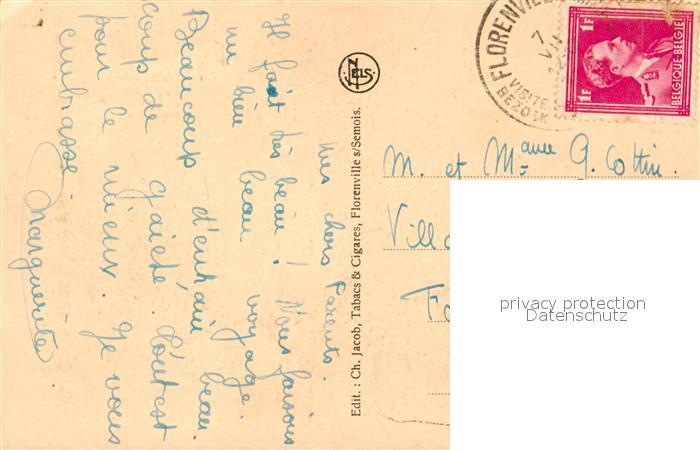 Mes chers Parents.
Il fait très beau! Nous faisons
un bien beau voyage.
Beaucoup d'entrain beau
coup de gaieté. Tout est
pour le mieux. Je vous
embrasse.
Marguerite.
NELS
Edit. : Ch. Jacob, Tabacs & Cigares, Florenville s/Semois.
FLORENVILLE
7
VISITE
BEZOEK
1F
1F
BELGIQUE-BELGIË
M. et Mme G. Cottin.
privacy protection
Datenschutz